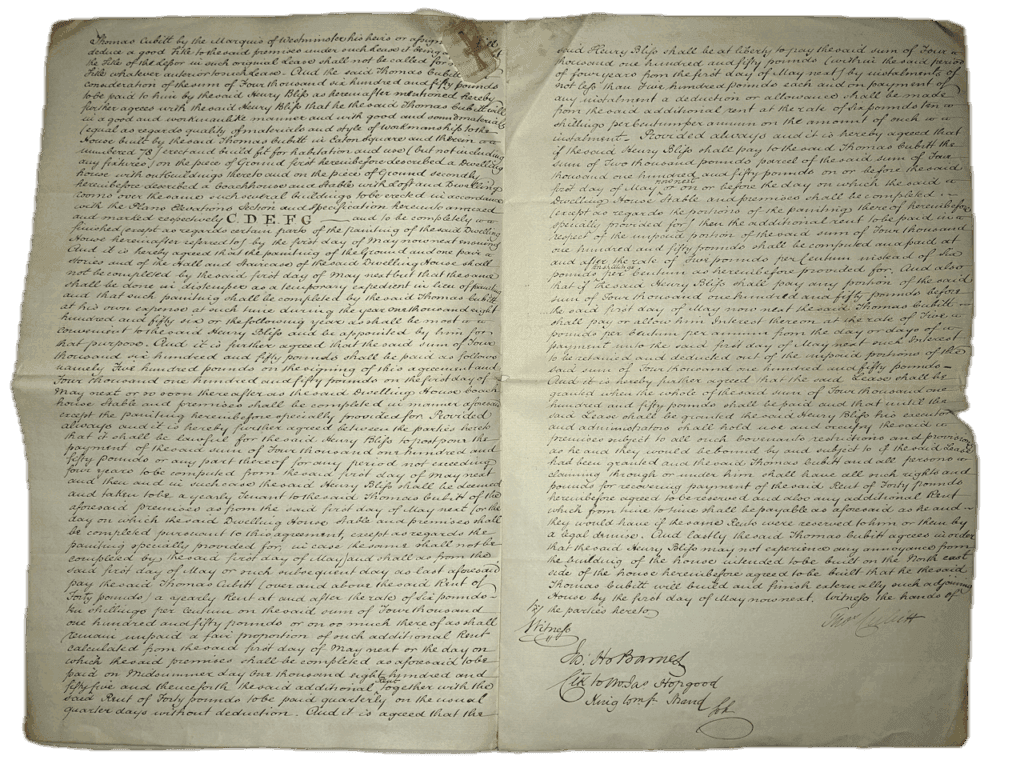 Thomas Cubitt by the Marquis of Westminster his heirs or assigns
deduce a good Title to the said premises under such Lease it being a
the Title of the Lessor in such original Lease shall not be called for
Title whatever anterior to such Lease. And the said Thomas Cubitt in
consideration of the sum of Four thousand six hundred and fifty pounds
to be paid to him by the said Henry Bliss as hereinafter mentioned hereby
further agrees with the said Henry Bliss that he the said Thomas Cubitt will
in a good and workmanlike manner and with good and sound materials
(equal as regards quality of materials and style of workmanship to the
House built by the said Thomas Cubitt in Eaton Square and therein
numbered 78) erect and build fit for habitation and use (but not including
any fixtures) on the piece of Ground first hereinbefore described a Dwelling
house with outbuildings thereto and on the piece of Ground secondly
hereinbefore described a Coachhouse and Stable with loft and Dwelling
rooms over the same such several buildings to be erected in accordance
with the Plans Elevations Section and Specification hereunto annexed
and marked respectively C. D. E. F. G and to be completely
finished, except as regards certain parts of the painting of the said Dwelling
House hereinafter referred to) by the first day of May now next ensuing
And it is hereby agreed that the painting of the Ground and one pair
Stories and of the Hall and Staircase of the said Dwelling House shall
not be completed by the said first day of May next but that the same
shall be done in distemper as a temporary expedient in lieu of painting
and that such painting shall be completed by the said Thomas Cubitt
at his own expense at such time during the year one thousand eight
hundred and fifty six or the following year as shall be most
convenient to the said Henry Bliss and be appointed by him for
that purpose. And it is further agreed that the said sum of Four
thousand six hundred and fifty pounds shall be paid as follows
namely Five hundred pounds on the signing of this agreement and
Four thousand one hundred and fifty pounds on the first day of
May next or so soon thereafter as the said Dwelling House Coach
house Stable and premises shall be completed in manner aforesaid
except the painting hereinbefore specially provided for. Provided
always and it is hereby further agreed between the parties hereto
that it shall be lawful for the said Henry Bliss to postpone the
payment of the said sum of Four thousand one hundred and
fifty pounds or any part thereof for any period not exceeding
four years to be computed from the said first day of May next
and then and in such case the said Henry Bliss shall be deemed
and taken to be a yearly Tenant to the said Thomas Cubitt of the
aforesaid premises as from the said first day of May next (or the
day on which the said Dwelling House Stable and premises shall
be completed pursuant to this agreement, except as regards the
painting specially provided for, in case the same shall not be
completed by the said first day of May) and shall as from the
said first day of May or such subsequent day as last aforesaid
pay the said Thomas Cubitt (over and above the said Rent of
Forty pounds) a yearly Rent at and after the rate of Six pounds
ten shillings per Centum on the said sum of Four thousand
one hundred and fifty pounds or on so much thereof as shall
remain unpaid a fair proportion of such additional Rent
calculated from the said first day of May next or the day on
which the said premises shall be completed as aforesaid to be
paid on Midsummer day One thousand eight hundred and
fifty five and thenceforth the said additional Rent together with the
said Rent of Forty pounds to be paid quarterly on the usual
quarter days without deduction. And it is agreed that the
said Henry Bliss shall be at liberty to pay the said sum of Four
thousand one hundred and fifty pounds (within the said period
of four years from the first day of May next) by instalments of
not less than Five hundred pounds each and on payment of
any instalment a deduction or allowance shall be made
from the said additional rent at the rate of Six pounds ten
shillings per centum per annum on the amount of such
instalment. Provided always and it is hereby agreed that
if the said Henry Bliss shall pay to the said Thomas Cubitt the
sum of Two thousand pounds parcel of the said sum of Four
thousand one hundred and fifty pounds on or before the said
first day of May now next or on or before the day on which the said
Dwelling House Stable and premises shall be completed
(except as regards the portions of the painting there of hereinbefore
specially provided for) then the additional rent to be paid in
respect of the unpaid portion of the said sum of Four thousand
one hundred and fifty pounds shall be computed and paid at
and after the rate of Five pounds per Centum instead of Six
pounds ten shillings per Centum as hereinbefore provided for. And also
that if the said Henry Bliss shall pay any portion of the said
sum of Four thousand one hundred and fifty pounds before
the said first day of May now next the said Thomas Cubitt
shall pay or allow him Interest thereon at the rate of Five
pounds per Centum per annum from the day or days of
payment unto the said first day of May next such Interest
to be retained and deducted out of the unpaid portions of the
said sum of Four thousand one hundred and fifty pounds
And it is hereby further agreed that the said Lease shall be
granted when the whole of the said sum of Four thousand one
hundred and fifty pounds shall be paid and that until the
said Lease shall be granted the said Henry Bliss his executors
and administrators shall hold use and occupy the said
premises subject to all such Covenants restrictions and provisoes
as he and they would be bound by and subject to if the said Lease
had been granted and the said Thomas Cubitt and all persons
claiming through or under him shall have all such rights and
pounds for recovering payment of the said Rent of Forty pounds
hereinbefore agreed to be reserved and also any additional Rent
which from time to time shall be payable as aforesaid as he and
they would have if the same Rents were reserved to him or them by
a legal demise. And lastly the said Thomas Cubitt agrees in order
that the said Henry Bliss may not experience any annoyance from
the building of the house intended to be built on the North east
side of the house hereinbefore agreed to be built that he the said
Thomas Cubitt will build and finish externally such adjoining
House by the first day of May now next. Witness the hands of
the parties hereto
Thos Cubitt
Witness
Jo. Ho Barnes
Clk to Mr Jas Hopgood
King Wm St Strand